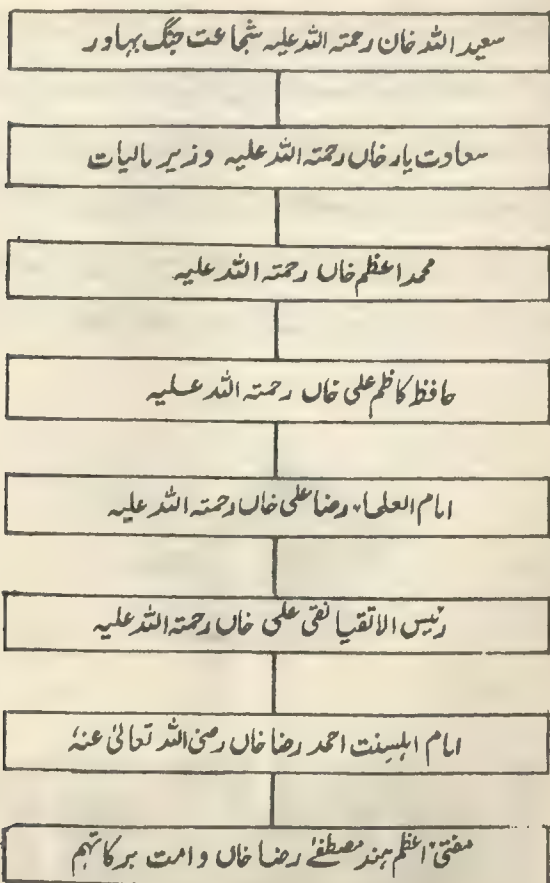 سعید اللہ خان رحمتہ اللہ علیہ شجاعت جنگ بہادر
سعادت یار خاں رحمتہ اللہ علیہ وزیر مالیات
محمد اعظم خاں رحمتہ اللہ علیہ
حافظ کاظم علی خاں رحمتہ اللہ علیہ
امام العلماء رضا علی خاں رحمتہ اللہ علیہ
رئیس الاتقیا نقی علی خاں رحمتہ اللہ علیہ
امام اہلسنت احمد رضا خاں رضی اللہ تعالیٰ عنہٗ
مفتیٔ اعظم ہند مصطفےٰ رضا خاں دامت برکاتہم